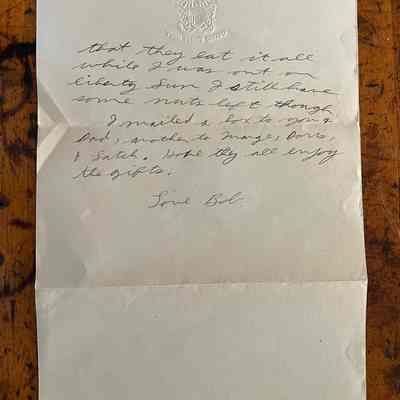 that they eat it all
while I was out on
liberty Sun. I still have
some nuts left though
I mailed a box to you &
Dad, another to Marge, Doris,
& Satch. Hope they all enjoy
the gifts.
Love Bob